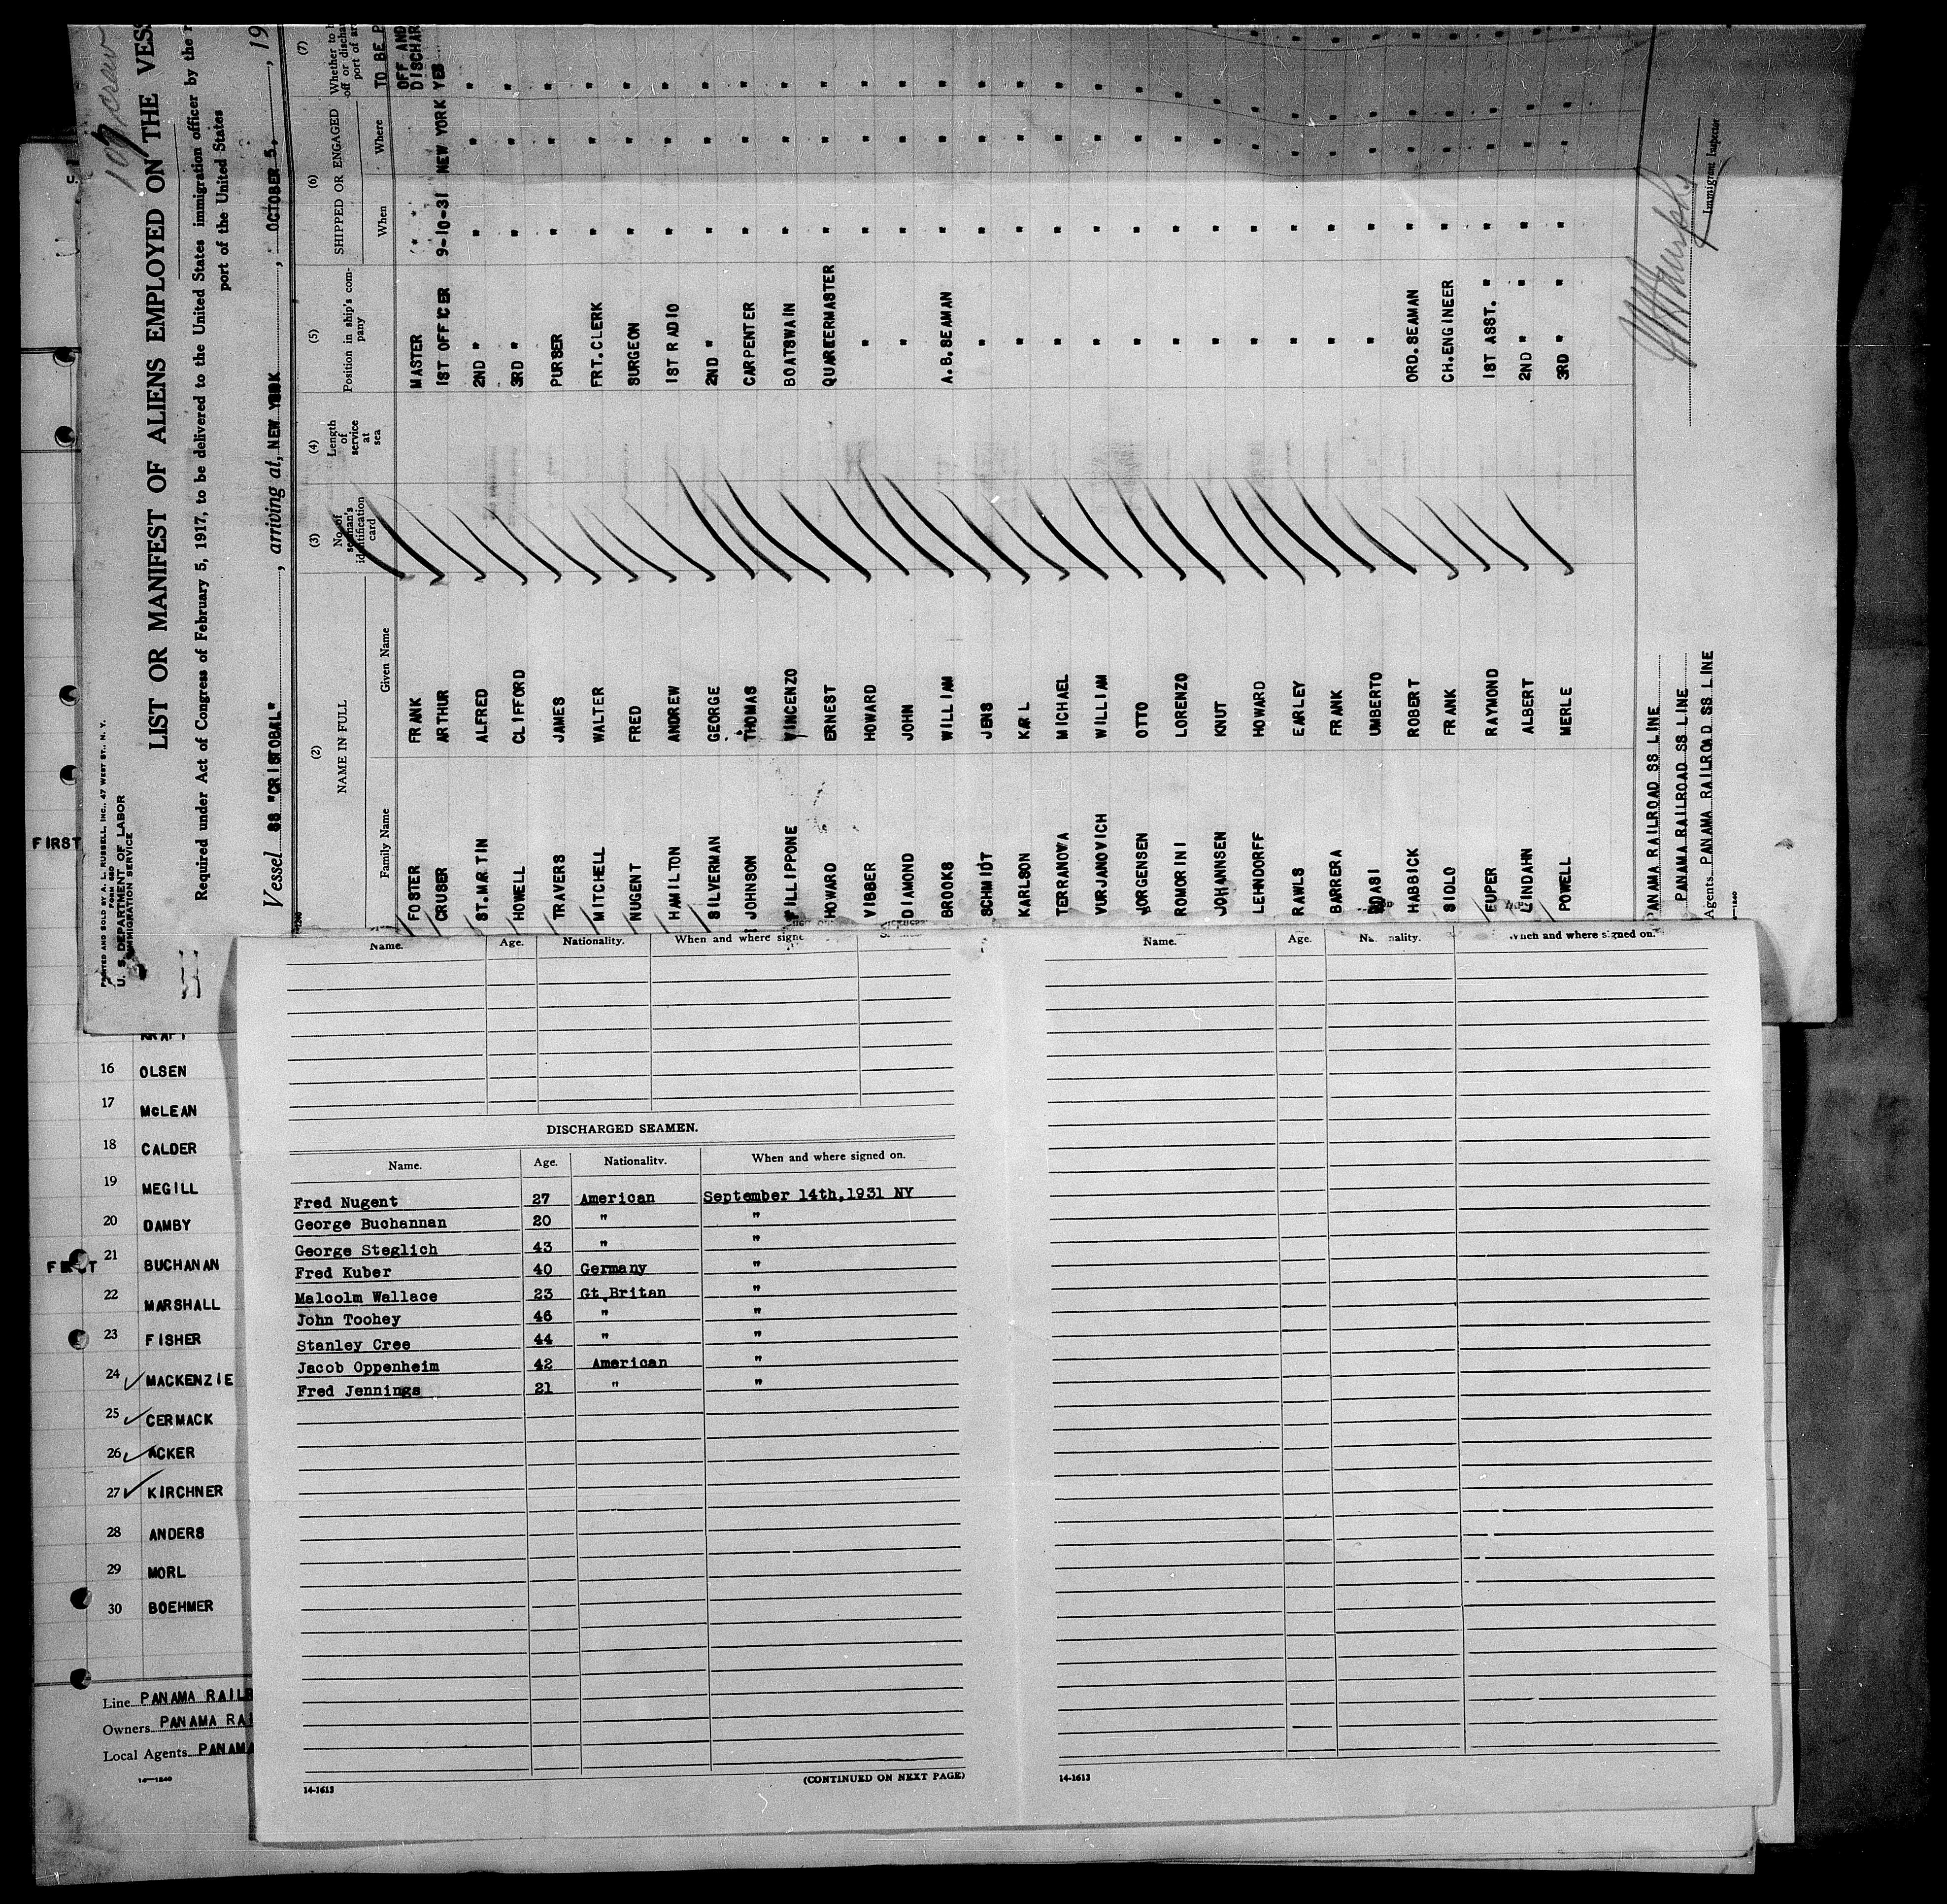 107 crew
PRINTED AND SOLD BY A. L. RUSSELL, INC., 47 WEST ST., N. Y.
FORM 680
U. S. DEPARTMENT OF LABOR
IMMIGRATION SERVICE
LIST OR MANIFEST OF ALIENS EMPLOYED ON THE VES
Required under Act of Congress of February 5, 1917, to be delivered to the United States immigration officer by the r
port of the United States
Vessel SS "CRISTOBAL", arriving at, NEW YORK, OCTOBER 5, 19
(2) (3) (4) (5) (6) (7)
NAME IN FULL
Family Name Given Name
No. of seaman's identification card
Length of service at sea
Position in ship's company
SHIPPED OR ENGAGED
When Where
Whether to b
off or discha
port of ar
TO BE P
OFF AND
DISCHAR
FOSTER FRANK MASTER " "
CRUSER ARTHUR 1ST OFFICER 9-10-31 NEW YORK YES
ST.MARTIN ALFRED 2ND " " " "
HOWELL CLIFFORD 3RD " " " "
TRAVERS JAMES PURSER " " "
MITCHELL WALTER FRT.CLERK " " "
NUGENT FRED SURGEON " " "
HAMILTON ANDREW 1ST RADIO " " "
SILVERMAN GEORGE 2ND " " " "
JOHNSON THOMAS CARPENTER " " "
FILLIPPONE VINCENZO BOATSWAIN " " "
HOWARD ERNEST QUARTERMASTER " " "
VIBBER HOWARD " " " "
DIAMOND JOHN " " " "
BROOKS WILLIAM A.B.SEAMAN " " "
SCHMIDT JENS " " " "
KARLSON KARL " " " "
TERRANOWA MICHAEL " " " "
VURJANOVICH WILLIAM " " " "
JORGENSEN OTTO " " " "
ROMORINI LORENZO " " " "
JOHANNSEN KNUT " " " "
LEHNDORFF HOWARD " " " "
RAWLS EARLEY " " " "
BARRERA FRANK " " " "
BOASI UMBERTO " " " "
HABBICK ROBERT ORD.SEAMAN " " "
SIDLO FRANK CH.ENGINEER " " "
EUPER RAYMOND 1ST ASST. " " " "
LINDAHN ALBERT 2ND " " " " "
POWELL MERLE 3RD " " " " "
PANAMA RAILROAD SS LINE
PANAMA RAILROAD SS LINE
Agents PANAMA RAILROAD SS LINE
Immigrant Inspector
FIRST
16 OLSEN
17 McLEAN
18 CALDER
19 MEGILL
20 DAMBY
FIRST 21 BUCHANAN
22 MARSHALL
23 FISHER
24 MACKENZIE
25 CERMACK
26 ACKER
27 KIRCHNER
28 ANDERS
29 MORL
30 BOEHMER
Line PANAMA RAILR
Owners PANAMA RAI
Local Agents PANAMA
14—1240
Name. Age. Nationality. When and where signe
DISCHARGED SEAMEN.
Name. Age. Nationality. When and where signed on.
Fred Nugent 27 American September 14th,1931 NY
George Buchannan 20 " "
George Steglich 43 " "
Fred Kuber 40 Germany "
Malcolm Wallace 23 Gt.Britan "
John Toohey 46 " "
Stanley Cree 44 " "
Jacob Oppenheim 42 American "
Fred Jennings 21 " "
14-1613 (CONTINUED ON NEXT PAGE)
Name. Age. Nationality. When and where signed on.
14-1613